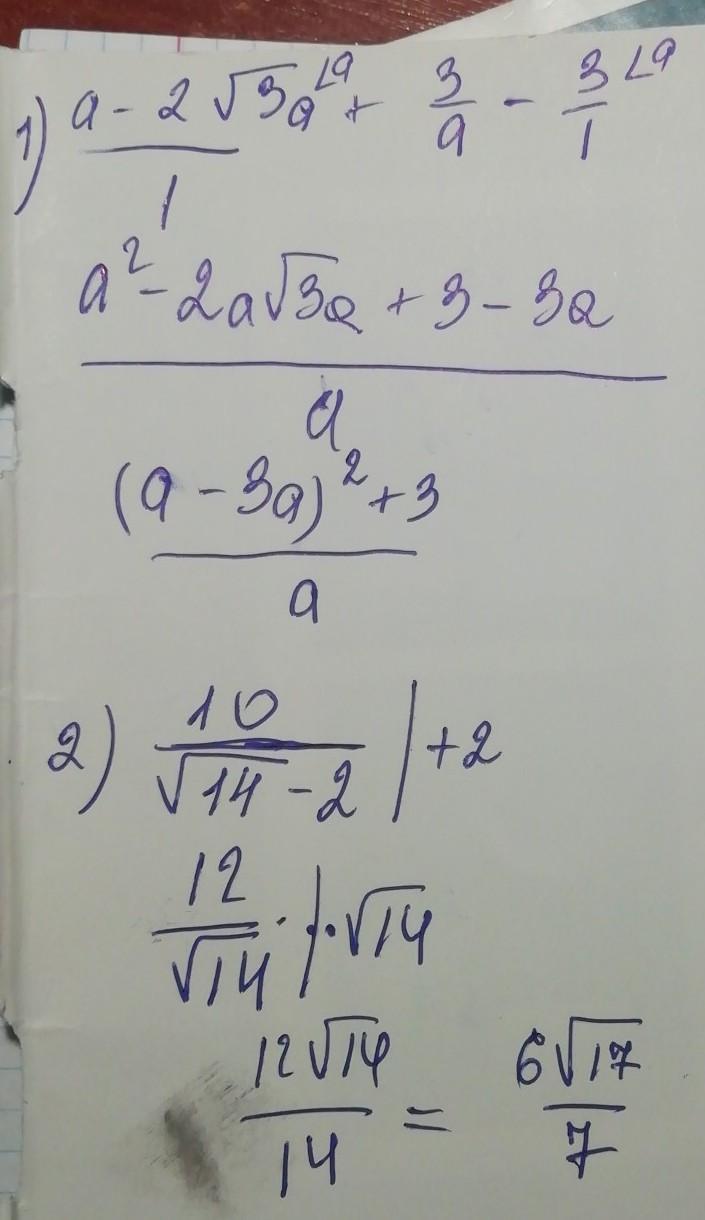 1) (a - 2√3a)/1 ∠a + 3/a - 3/1 ∠a
(a² - 2a√3a + 3 - 3a)/a
((a - 3a)² + 3)/a
2) 10/(√14 - 2) | +2
12/√14 · | · √14
12√14/14 = 6√17/7